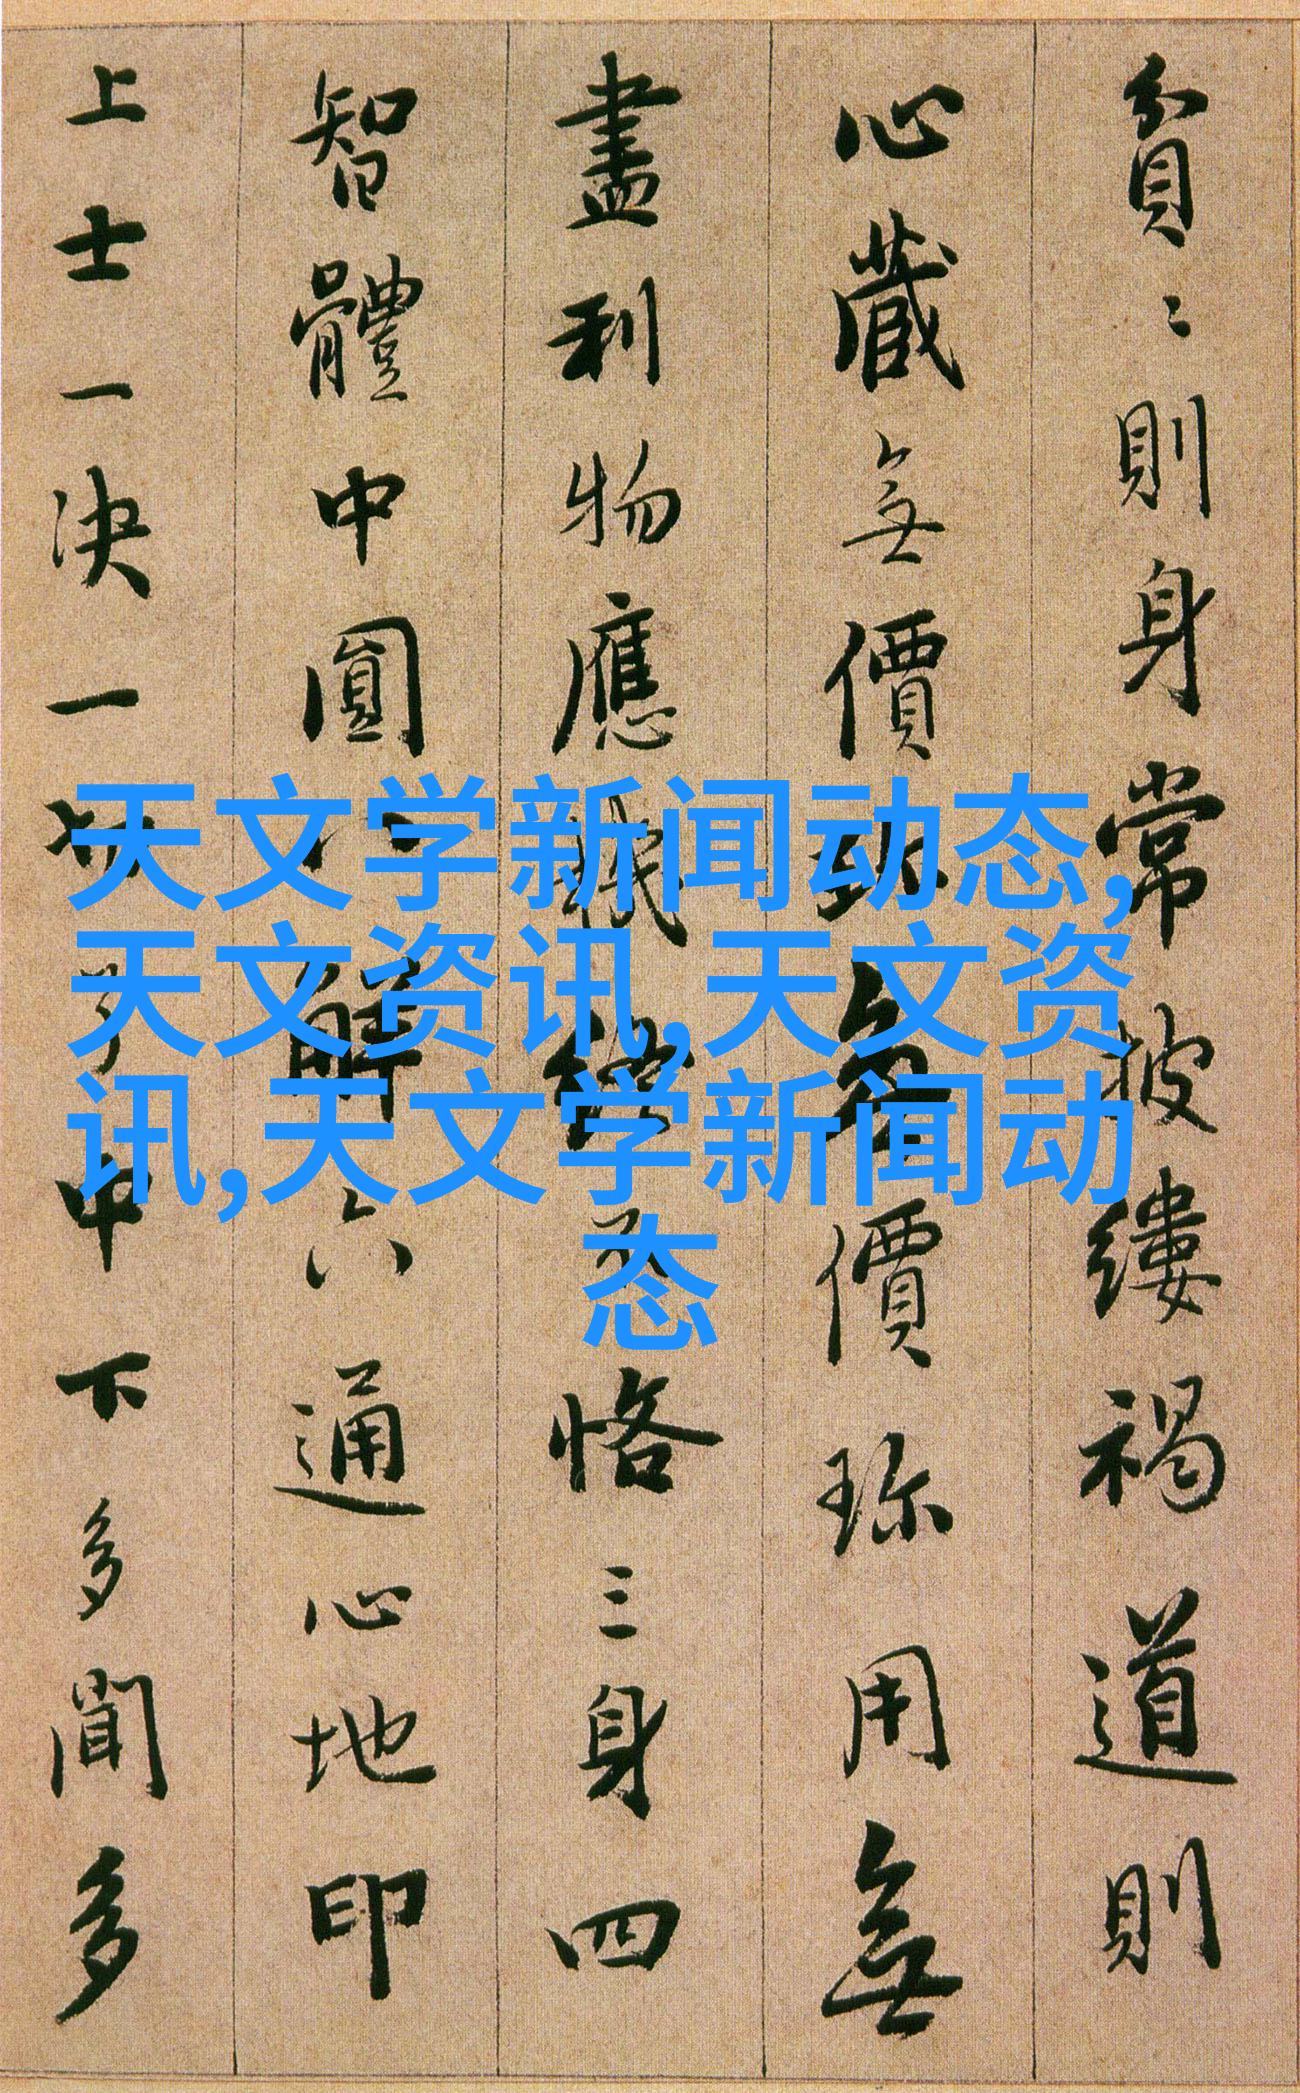 貧〻則身常披縷褐道則
心藏無價珎無價珎用無
盡利物應機終不恪三身四
智體中圓八解六通心地印
上士一決一切了中下多聞多
天文学新闻动态,
天文资讯,天文资
讯,天文学新闻动
态